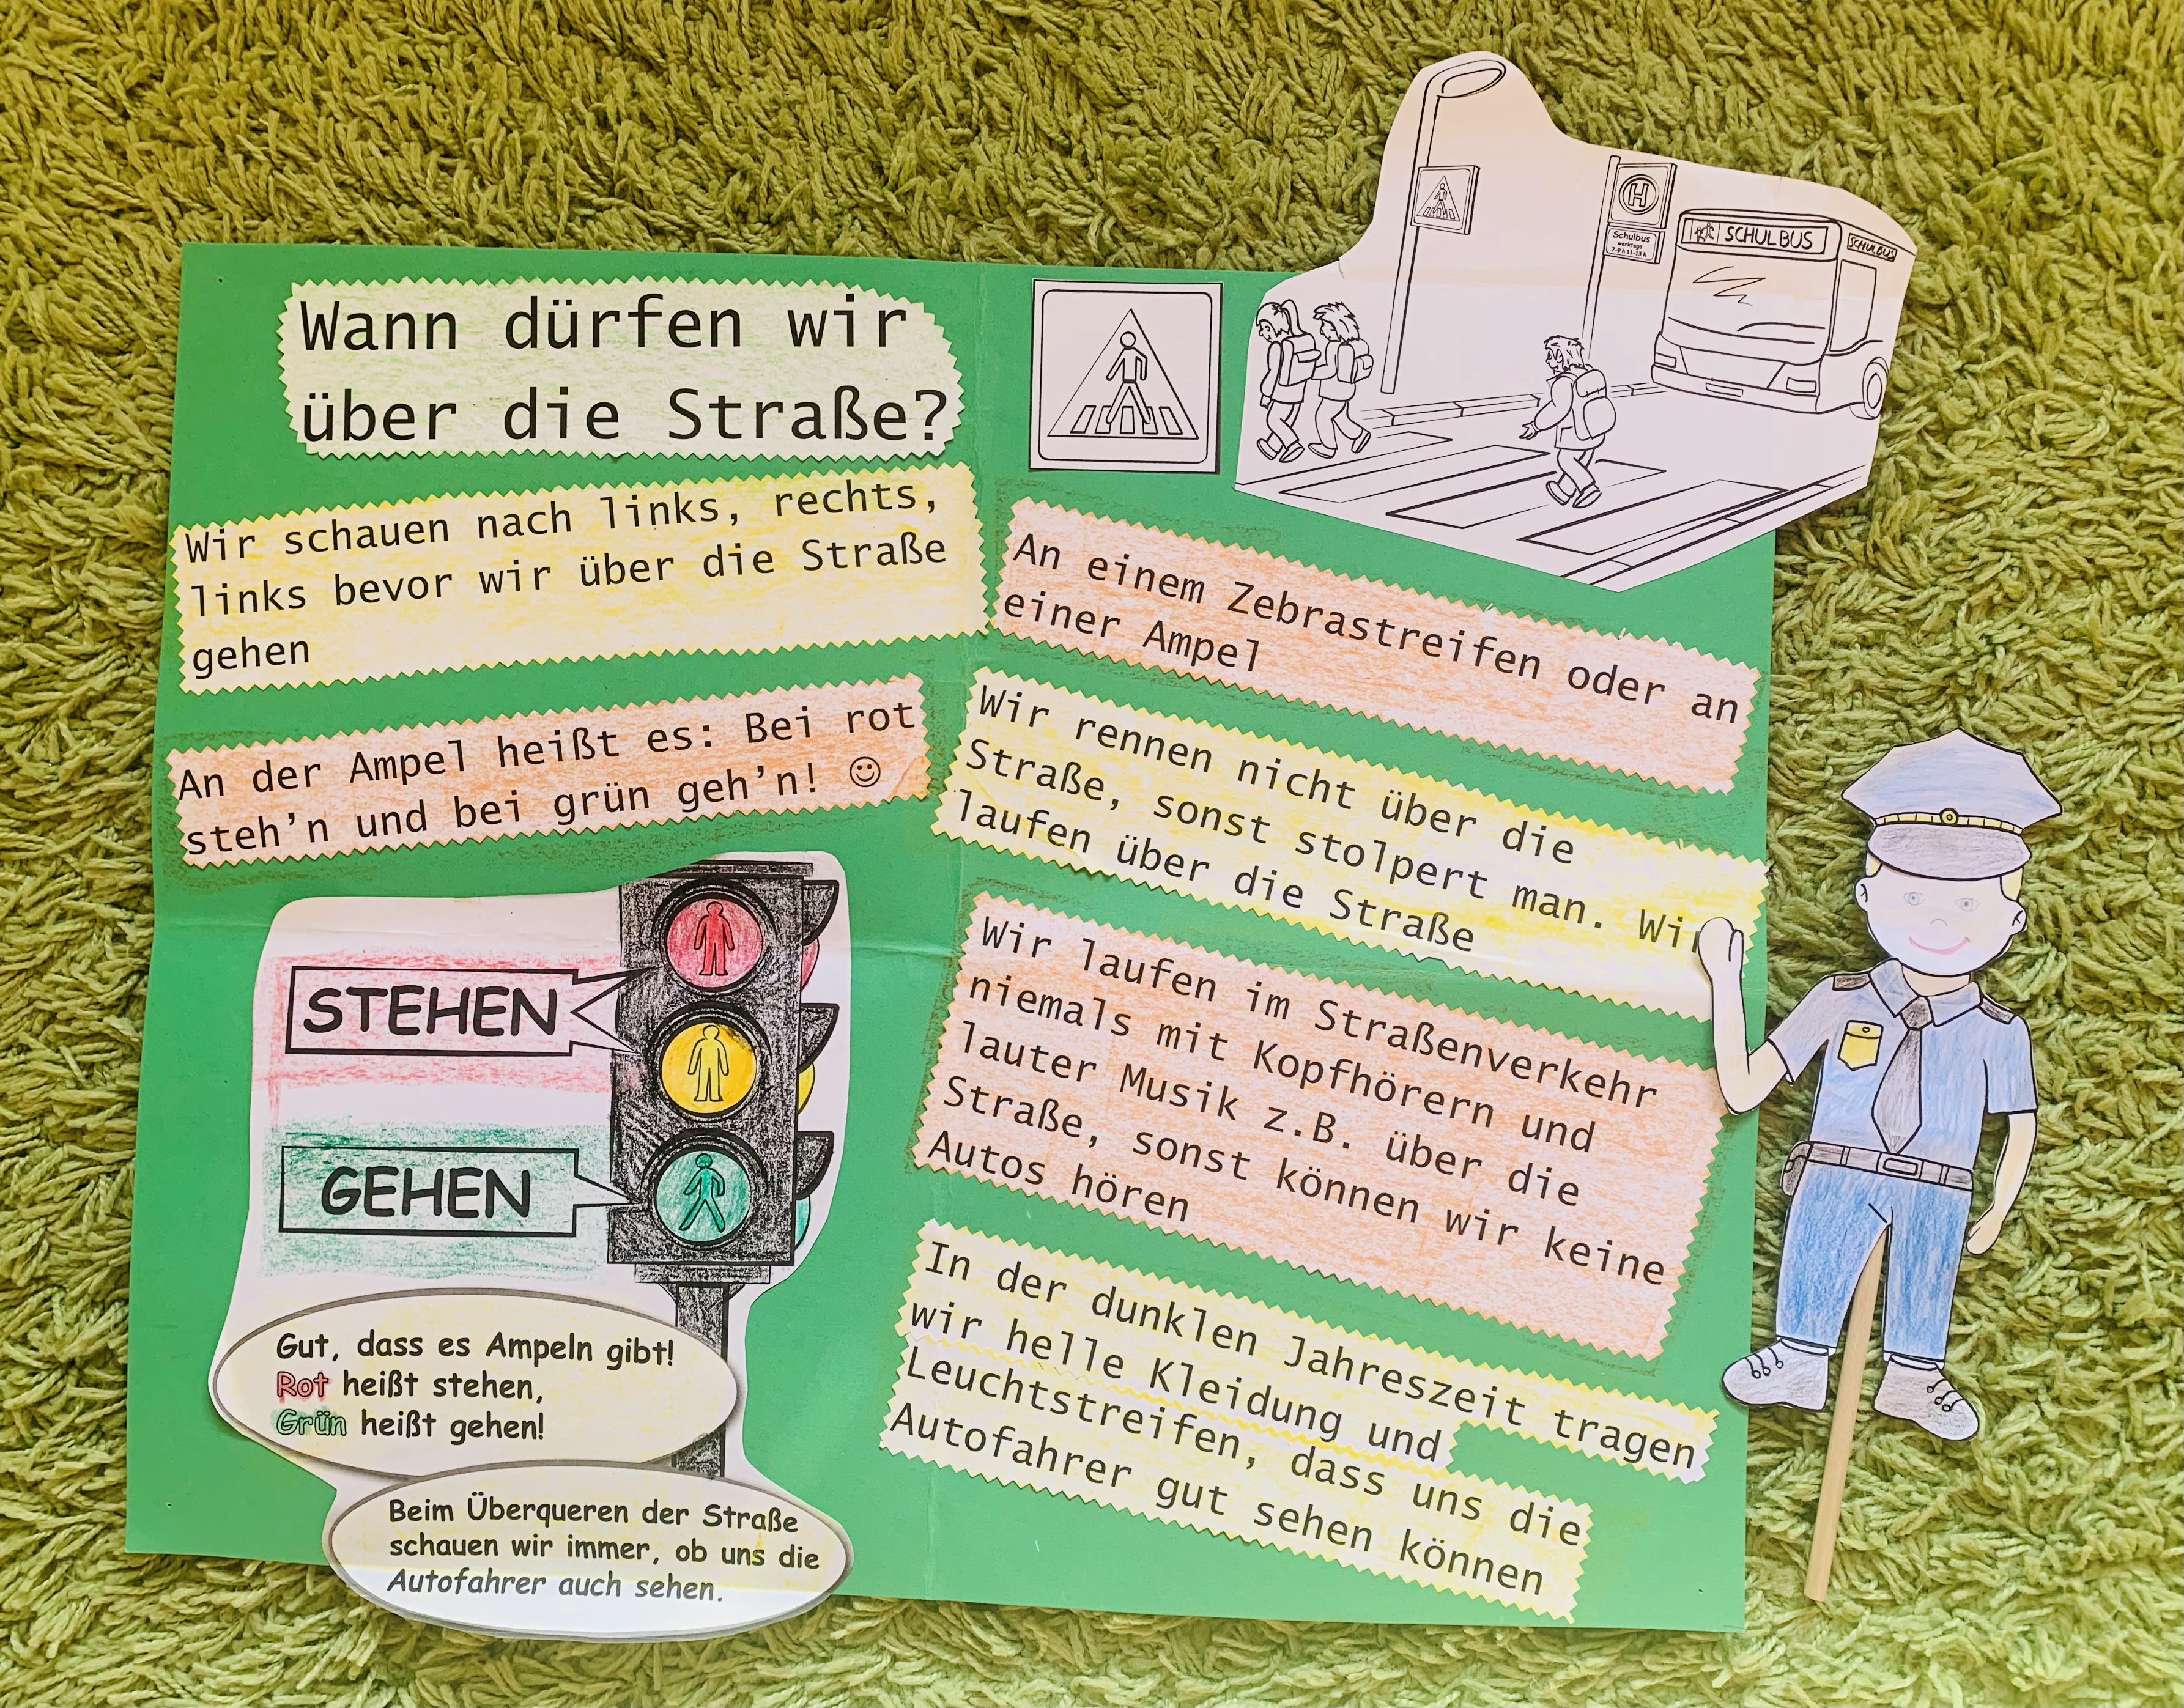 Wann dürfen wir
über die Straße?
Wir schauen nach links, rechts,
links bevor wir über die Straße
gehen
An der Ampel heißt es: Bei rot
steh'n und bei grün geh'n! ☺
STEHEN
GEHEN
Gut, dass es Ampeln gibt!
Rot heißt stehen,
Grün heißt gehen!
Beim Überqueren der Straße
schauen wir immer, ob uns die
Autofahrer auch sehen.
H
Schulbus
werktags
7-9 h 11-13 h
SCHULBUS
SCHULBUS
An einem Zebrastreifen oder an
einer Ampel
Wir rennen nicht über die
Straße, sonst stolpert man. Wir
laufen über die Straße
Wir laufen im Straßenverkehr
niemals mit Kopfhörern und
lauter Musik z.B. über die
Straße, sonst können wir keine
Autos hören
In der dunklen Jahreszeit tragen
wir helle Kleidung und
Leuchtstreifen, dass uns die
Autofahrer gut sehen können